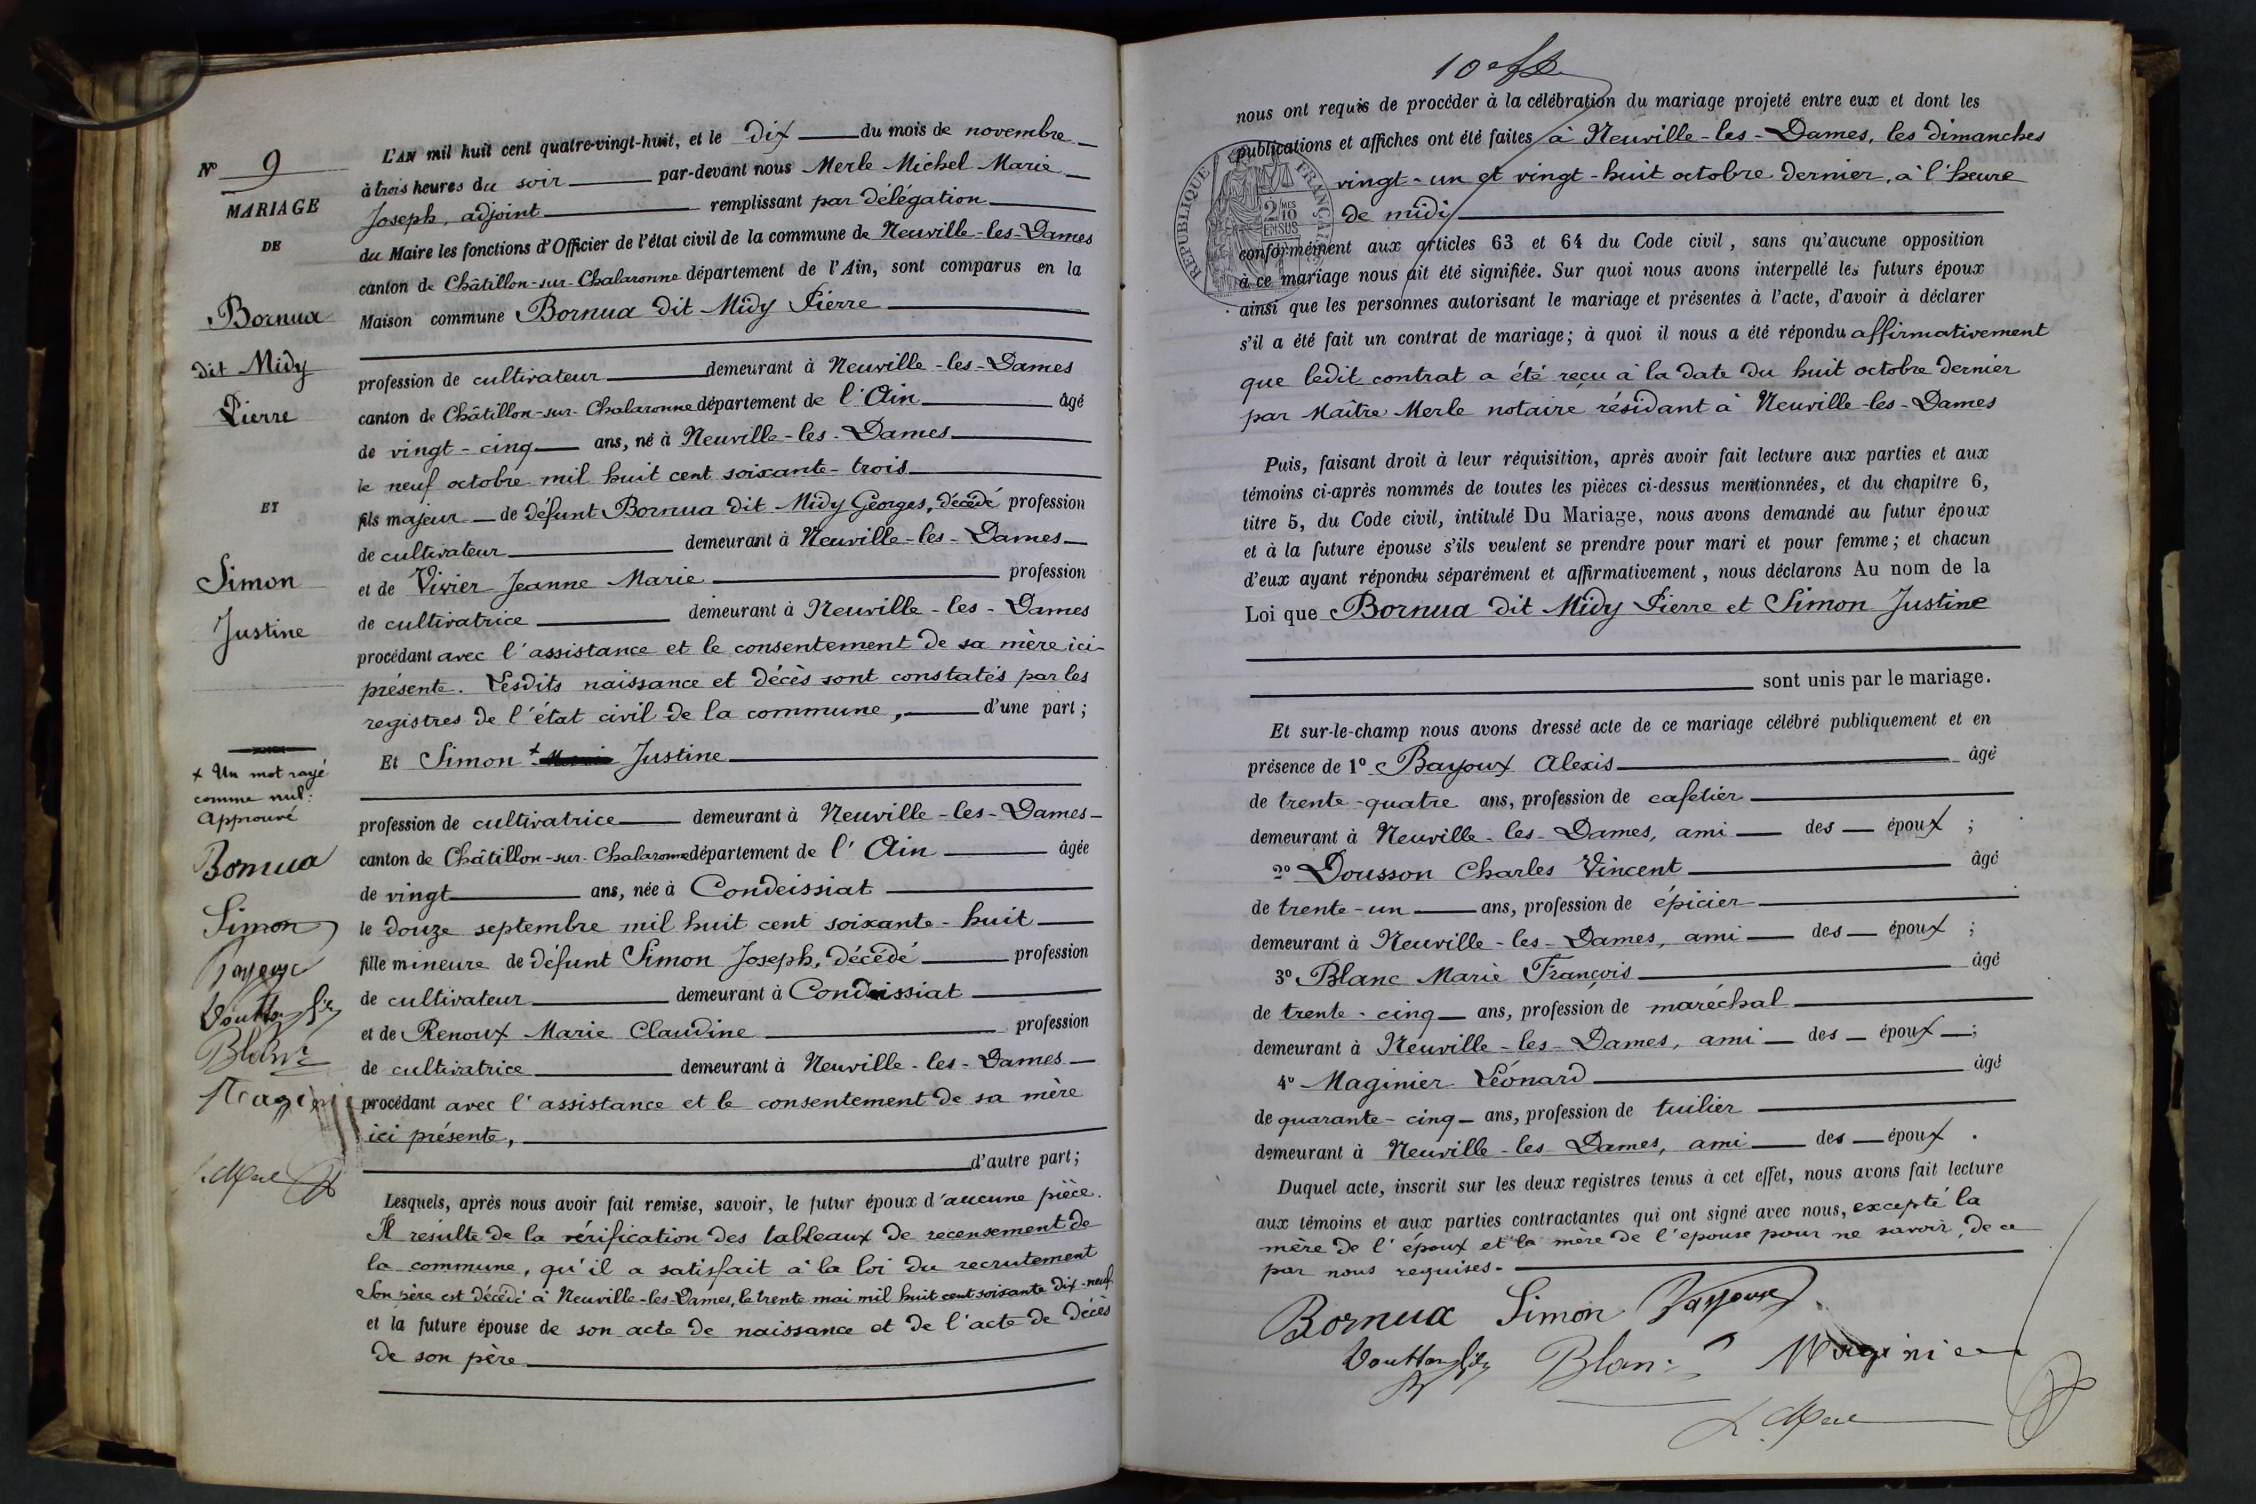 N° 9
MARIAGE
DE
Bornua
dit Midy
Pierre
ET
Simon
Justine
+ Un mot rayé
comme nul.
Approuvé
Bornua
Simon
Blanc
L'AN mil huit cent quatre-vingt-huit, et le dix du mois de novembre
à trois heures du soir par-devant nous Merle Michel Marie
Joseph, adjoint remplissant par délégation
du Maire les fonctions d'Officier de l'état civil de la commune de Neuville-les-Dames
canton de Châtillon-sur-Chalaronne département de l'Ain, sont comparus en la
Maison commune Bornua dit Midy Pierre
profession de cultivateur demeurant à Neuville-les-Dames
canton de Châtillon-sur-Chalaronne département de l'Ain âgé
de vingt-cinq ans, né à Neuville-les-Dames
le neuf octobre mil huit cent soixante-trois
fils majeur de défunt Bornua dit Midy Georges, décédé profession
de cultivateur demeurant à Neuville-les-Dames
et de Vivier Jeanne Marie profession
de cultivatrice demeurant à Neuville-les-Dames
procédant avec l'assistance et le consentement de sa mère ici-
présente. Lesdits naissance et décès sont constatés par les
registres de l'état civil de la commune, d'une part;
Et Simon + Justine
profession de cultivatrice demeurant à Neuville-les-Dames
canton de Châtillon-sur-Chalaronne département de l'Ain âgée
de vingt ans, née à Condeissiat
le douze septembre mil huit cent soixante-huit
fille mineure de défunt Simon Joseph, décédé profession
de cultivateur demeurant à Condeissiat
et de Renoux Marie Claudine profession
de cultivatrice demeurant à Neuville-les-Dames
procédant avec l'assistance et le consentement de sa mère
ici présente,
d'autre part;
Lesquels, après nous avoir fait remise, savoir, le futur époux d'aucune pièce.
Il résulte de la vérification des tableaux de recensement de
la commune, qu'il a satisfait à la loi du recrutement
Son père est décédé à Neuville-les-Dames, le trente mai mil huit cent soixante dix-neuf
et la future épouse de son acte de naissance et de l'acte de décès
de son père
10e
nous ont requis de procéder à la célébration du mariage projeté entre eux et dont les
publications et affiches ont été faites à Neuville-les-Dames, les dimanches
vingt-un et vingt-huit octobre dernier, à l'heure
de midi
RÉPUBLIQUE FRANÇAISE
2/10 EN SUS
conformément aux articles 63 et 64 du Code civil, sans qu'aucune opposition
à ce mariage nous ait été signifiée. Sur quoi nous avons interpellé les futurs époux
ainsi que les personnes autorisant le mariage et présentes à l'acte, d'avoir à déclarer
s'il a été fait un contrat de mariage; à quoi il nous a été répondu affirmativement
que ledit contrat a été reçu à la date du huit octobre dernier
par Maître Merle notaire résidant à Neuville-les-Dames
Puis, faisant droit à leur réquisition, après avoir fait lecture aux parties et aux
témoins ci-après nommés de toutes les pièces ci-dessus mentionnées, et du chapitre 6,
titre 5, du Code civil, intitulé Du Mariage, nous avons demandé au futur époux
et à la future épouse s'ils veulent se prendre pour mari et pour femme; et chacun
d'eux ayant répondu séparément et affirmativement, nous déclarons Au nom de la
Loi que Bornua dit Midy Pierre et Simon Justine
sont unis par le mariage.
Et sur-le-champ nous avons dressé acte de ce mariage célébré publiquement et en
présence de 1° Bayoux Alexis âgé
de trente-quatre ans, profession de cafetier
demeurant à Neuville-les-Dames, ami des époux ;
2° Dousson Charles Vincent âgé
de trente-un ans, profession de épicier
demeurant à Neuville-les-Dames, ami des époux ;
3° Blanc Marie François âgé
de trente-cinq ans, profession de maréchal
demeurant à Neuville-les-Dames, ami des époux ;
4° Maginier Léonard âgé
de quarante-cinq ans, profession de tuilier
demeurant à Neuville-les-Dames, ami des époux .
Duquel acte, inscrit sur les deux registres tenus à cet effet, nous avons fait lecture
aux témoins et aux parties contractantes qui ont signé avec nous, excepté la
mère de l'époux et la mère de l'épouse pour ne savoir, de ce
par nous requises.
Bornua Simon
Blanc Maginier